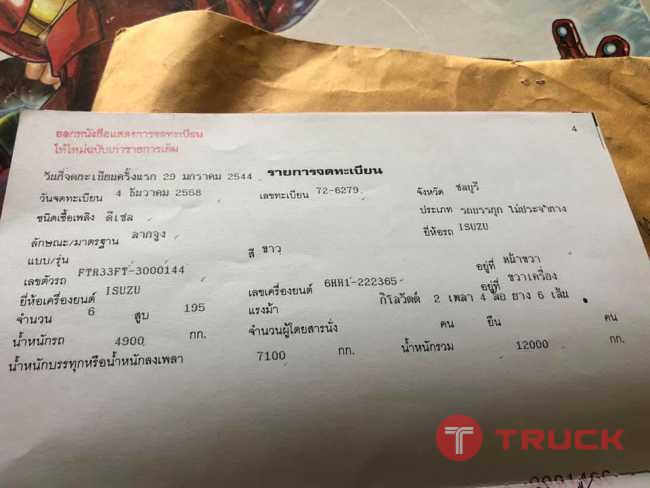 ออกหนังสือแสดงการจดทะเบียน
ให้ใหม่ฉบับเก่ารายการเดิม
4
วันที่จดทะเบียนครั้งแรก 29 มกราคม 2544 รายการจดทะเบียน
วันจดทะเบียน 4 ธันวาคม 2558 เลขทะเบียน 72-6279 จังหวัด ชลบุรี
ชนิดเชื้อเพลิง ดีเซล ประเภท รถบรรทุก ไม่ประจำทาง
ลักษณะ/มาตรฐาน ลากจูง ยี่ห้อรถ ISUZU
แบบ/รุ่น สี ขาว
เลขตัวรถ FTR33FT-3000144 อยู่ที่ หน้าขวา
ยี่ห้อเครื่องยนต์ ISUZU เลขเครื่องยนต์ 6HH1-222365 อยู่ที่ ขวาเครื่อง
จำนวน 6 สูบ 195 แรงม้า กิโลวัตต์ 2 เพลา 4 ล้อ ยาง 6 เส้น
น้ำหนักรถ 4900 กก. จำนวนผู้โดยสารนั่ง คน ยืน คน
น้ำหนักบรรทุกหรือน้ำหนักลงเพลา 7100 กก. น้ำหนักรวม 12000 กก.
TRUCK